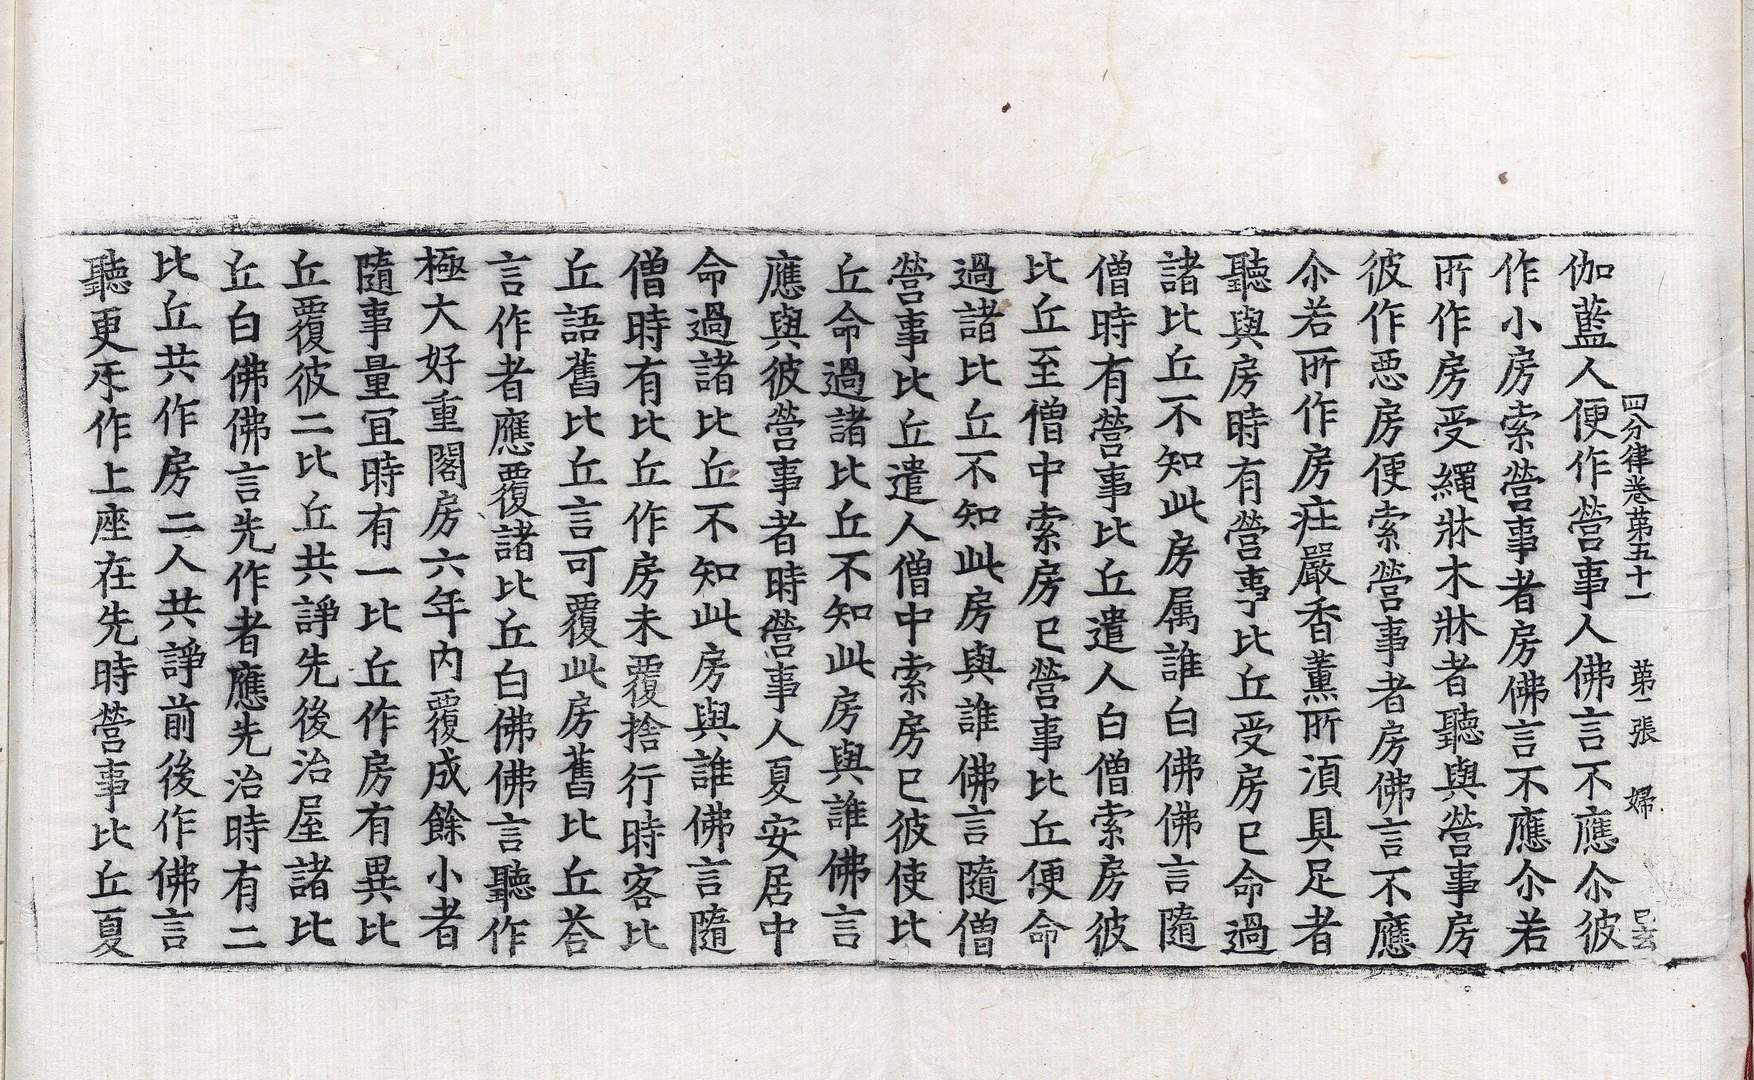 四分律卷苐五十一 苐二張 婦 呂玄
伽藍人便作營事人佛言不應尒彼
作小房索營事者房佛言不應尒若
所作房受繩牀木牀者聽與營事房
彼作惡房便索營事者房佛言不應
尒若所作房疘嚴香薰所湏具足者
聽與房時有營事比丘受房已命過
諸比丘不知此房属誰白佛佛言隨
僧時有營事比丘遣人白僧索房彼
比丘至僧中索房已營事比丘便命
過諸比丘不知此房與誰佛言隨僧
營事比丘遣人僧中索房已彼使比
丘命過諸比丘不知此房與誰佛言
應與彼營事者時營事人夏安居中
命過諸比丘不知此房與誰佛言隨
僧時有比丘作房未覆捨行時客比
丘語舊比丘言可覆此房舊比丘荅
言作者應覆諸比丘白佛佛言聽作
極大好重閣房六年內覆成餘小者
隨事量冝時有一比丘作房有異比
丘覆彼二比丘共諍先後治屋諸比
丘白佛佛言先作者應先治時有二
比丘共作房二人共諍前後作佛言
聽更㸦作上座在先時營事比丘夏